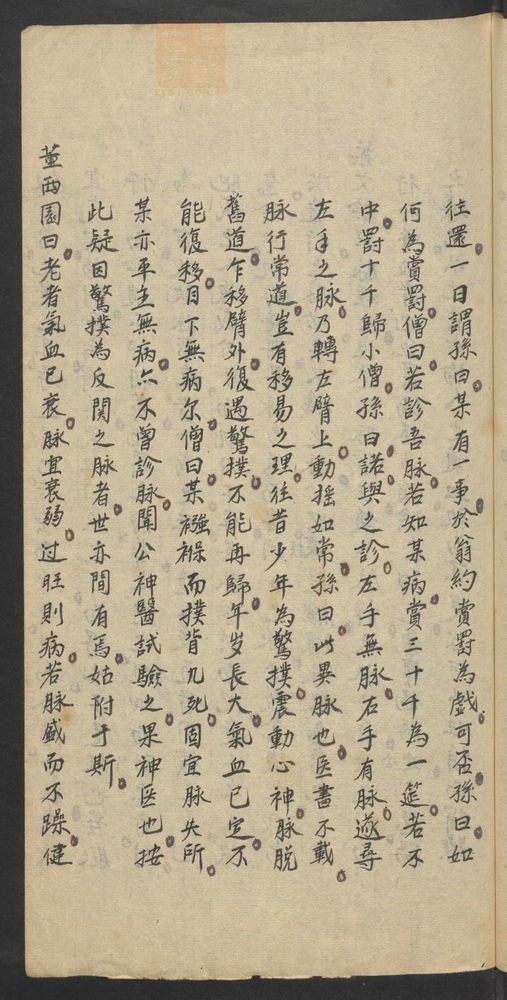 往還一日謂孫曰某有一事於翁約賞罰為戲可否孫曰如
何為賞罰僧曰若診吾脉若知某病賞三十千為一筵若不
中罰十千歸小僧孫曰諾與之診左手無脉右手有脉遂尋
左手之脉乃轉左臂上動揺如常孫曰此異脉也医書不載
脉行常道豈有移易之理往昔少年為驚撲震動心神脉脱
舊道乍移臂外復遇驚撲不能再歸年岁長大氣血已定不
能復移目下無病尔僧曰某襁褓而撲背九死固宜脉失所
某亦平生無病亦不曾診脉聞公神醫試驗之果神医也按
此疑因驚撲為反関之脉者世亦間有焉姑附于斯
董西園曰老者氣血已衰脉宜衰弱过旺則病若脉盛而不躁健